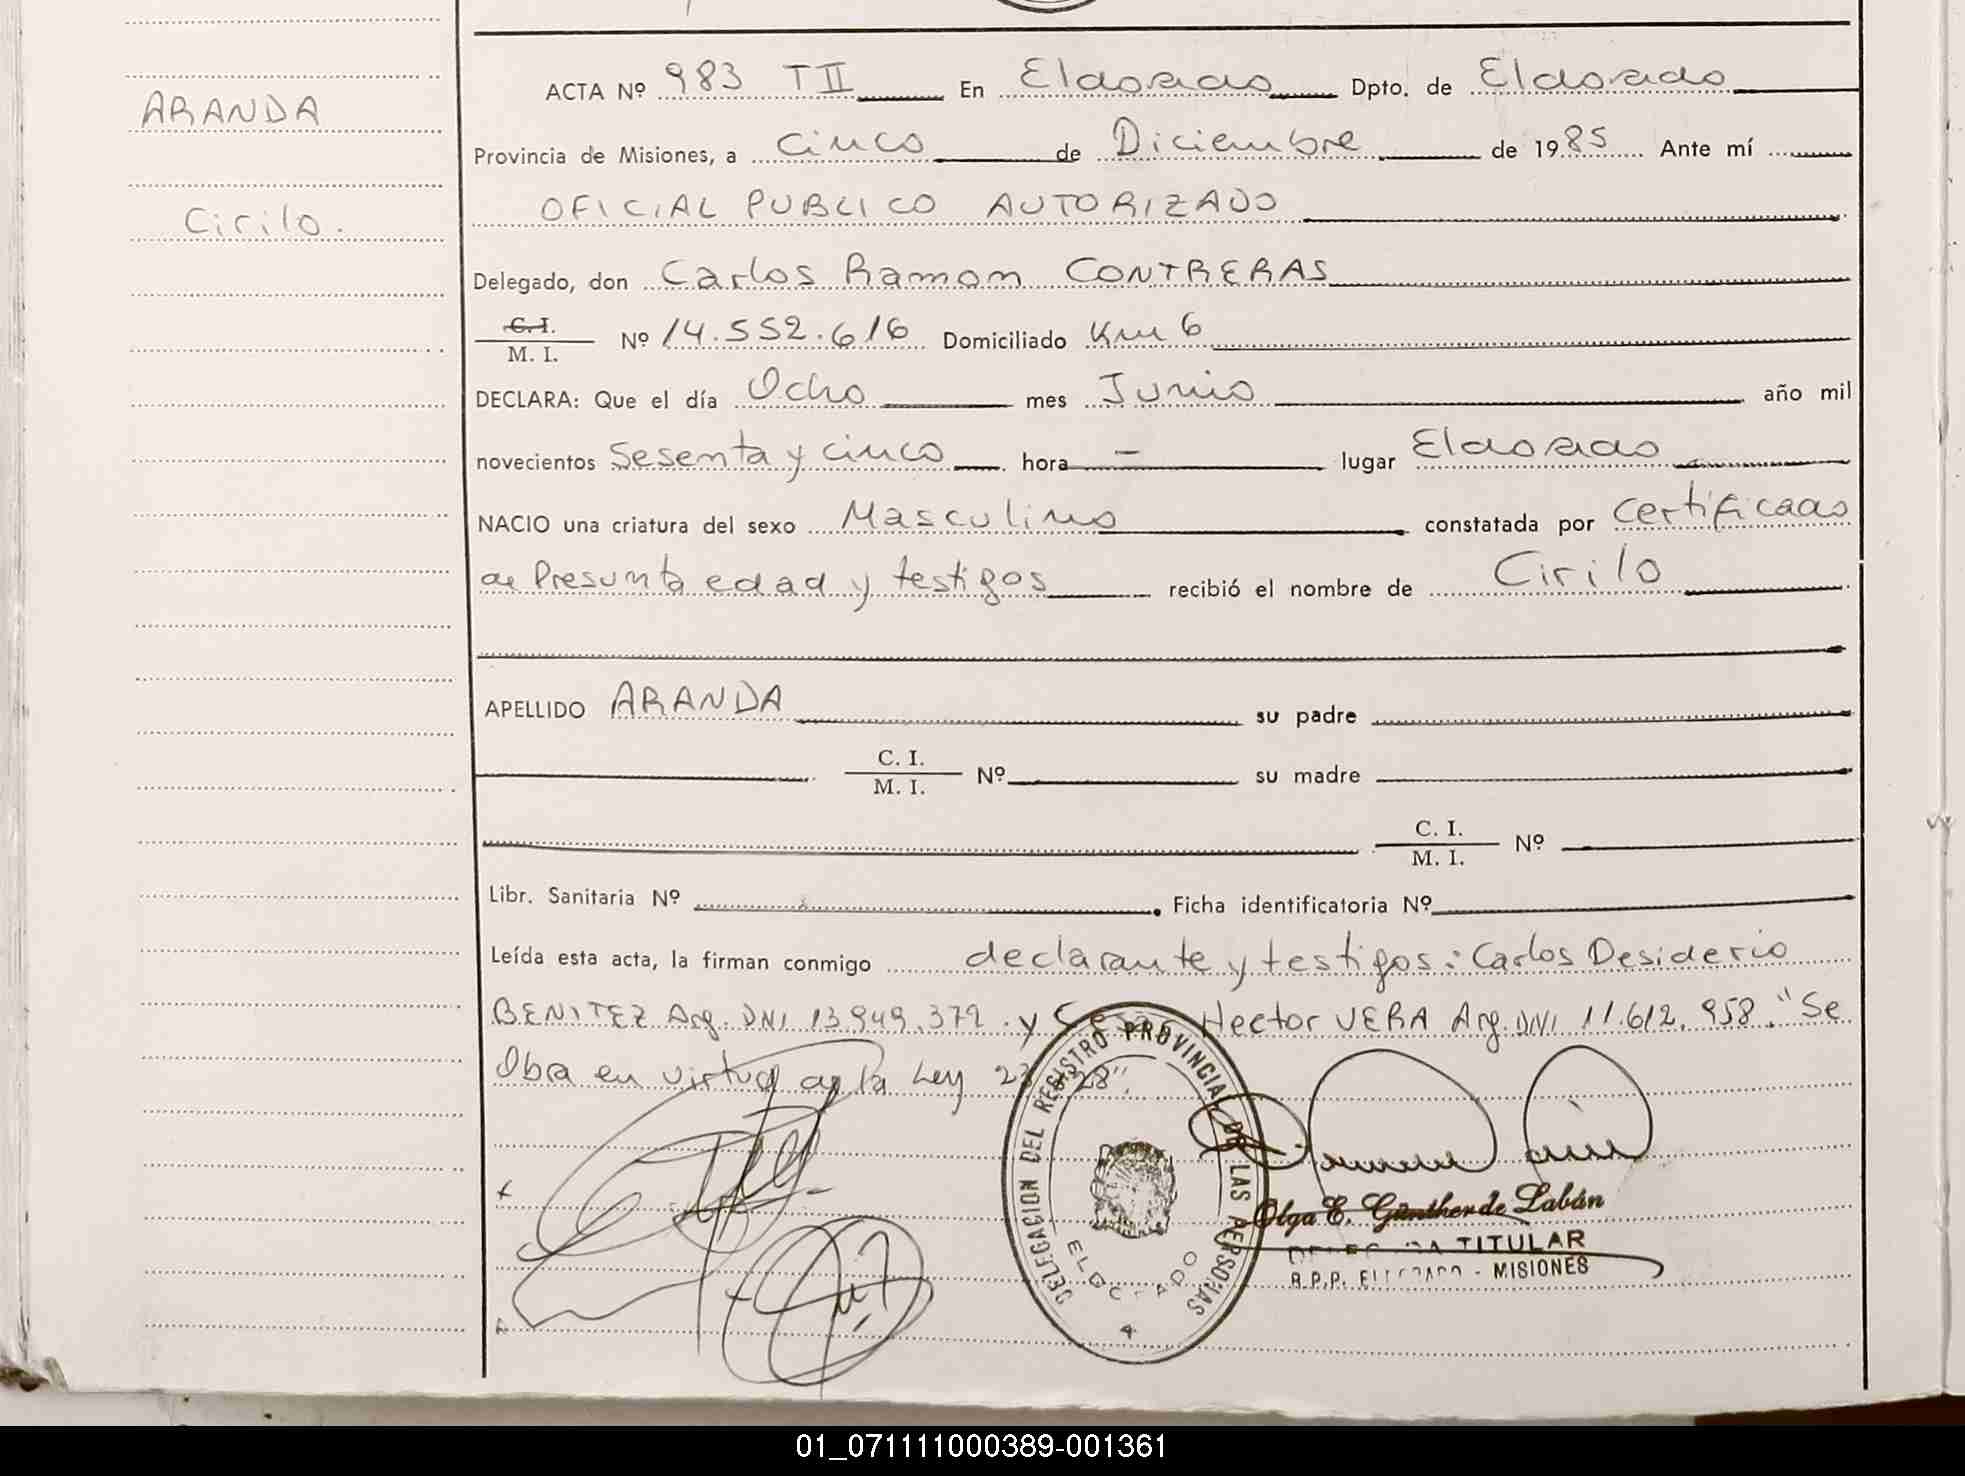 ARANDA
Cirilo.
ACTA Nº 983 TII En Eldorado Dpto. de Eldorado
Provincia de Misiones, a cinco de Diciembre de 1985 Ante mí
OFICIAL PUBLICO AUTORIZADO
Delegado, don Carlos Ramon CONTRERAS
C. I.
M. I. Nº 14.552.616 Domiciliado Km 6
DECLARA: Que el día Ocho mes Junio año mil
novecientos Sesenta y cinco hora — lugar Eldorado
NACIO una criatura del sexo Masculino constatada por certificado
de Presunta edad y testigos recibió el nombre de Cirilo
APELLIDO ARANDA su padre
C. I.
M. I. Nº su madre
C. I.
M. I. Nº
Libr. Sanitaria Nº Ficha identificatoria Nº
Leída esta acta, la firman conmigo declarante y testigos: Carlos Desiderio
BENITEZ Arg. DNI 13.949.372. y Hector VERA Arg. DNI 11.612.958. "Se
Obra en virtud de la Ley
DELEGACION DEL REGISTRO PROVINCIAL DE LAS PERSONAS
ELDORADO
Olga E. Günther de Labán
TITULAR
R.P.P. ELDORADO - MISIONES
01_071111000389-001361